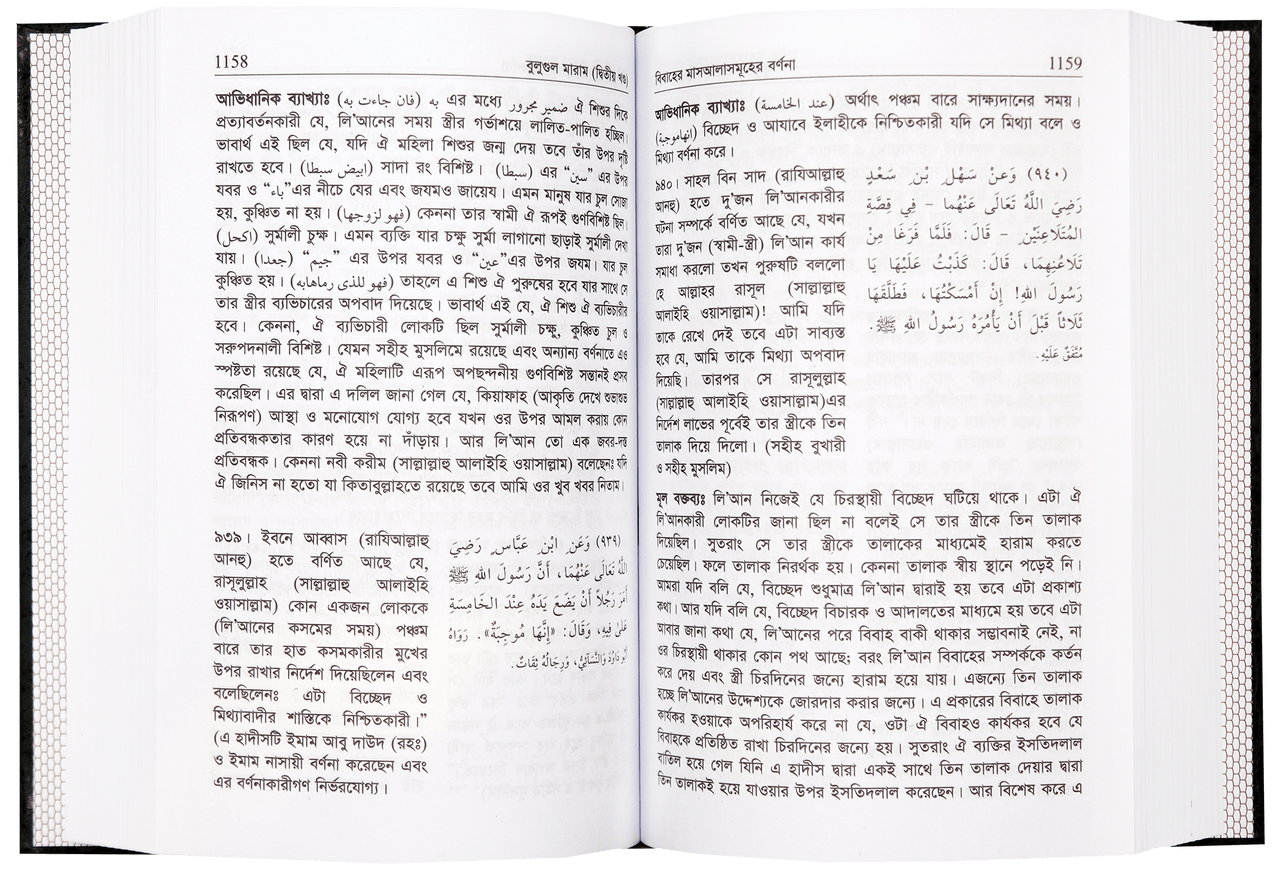 1158
বুলুগুল মারাম (দ্বিতীয় খণ্ড)
আভিধানিক ব্যাখ্যাঃ (فان جاءت به) به এর মধ্যে ضمير مجرور ঐ শিশুর দিকে
প্রত্যাবর্তনকারী যে, লি'আনের সময় স্ত্রীর গর্ভাশয়ে লালিত-পালিত হচ্ছিল।
ভাবার্থ এই ছিল যে, যদি ঐ মহিলা শিশুর জন্ম দেয় তবে তাঁর উপর দৃষ্টি
রাখতে হবে। (ابيض سبطا) সাদা রং বিশিষ্ট। (سبطا) এর “سين” এর উপর
যবর ও “باء”এর নীচে যের এবং জযমও জায়েয। এমন মানুষ যার চুল সোজা
হয়, কুঞ্চিত না হয়। (فهو لزوجها) কেননা তার স্বামী ঐ রূপই গুণবিশিষ্ট ছিল।
(اكحل) সুর্মালী চুক্ষ। এমন ব্যক্তি যার চক্ষু সুর্মা লাগানো ছাড়াই সুর্মালী দেখা
যায়। (جعدا) “جيم” এর উপর যবর ও “عين”এর উপর জযম। যার চুল
কুঞ্চিত হয়। (فهو للذى رماها به) তাহলে এ শিশু ঐ পুরুষের হবে যার সাথে সে
তার স্ত্রীর ব্যভিচারের অপবাদ দিয়েছে। ভাবার্থ এই যে, ঐ শিশু ঐ ব্যভিচারীর
হবে। কেননা, ঐ ব্যভিচারী লোকটি ছিল সুর্মালী চক্ষু, কুঞ্চিত চুল ও
সরুপদনালী বিশিষ্ট। যেমন সহীহ মুসলিমে রয়েছে এবং অন্যান্য বর্ণনাতে এও
স্পষ্টতা রয়েছে যে, ঐ মহিলাটি এরূপ অপছন্দনীয় গুণবিশিষ্ট সন্তানই প্রসব
করেছিল। এর দ্বারা এ দলিল জানা গেল যে, কিয়াফাহ (আকৃতি দেখে শুভাশুভ
নিরূপণ) আস্থা ও মনোযোগ যোগ্য হবে যখন ওর উপর আমল করায় কোন
প্রতিবন্ধকতার কারণ হয়ে না দাঁড়ায়। আর লি'আন তো এক জবর-দস্ত
প্রতিবন্ধক। কেননা নবী করীম (সাল্লাল্লাহু আলাইহি ওয়াসাল্লাম) বলেছেনঃ যদি
ঐ জিনিস না হতো যা কিতাবুল্লাহতে রয়েছে তবে আমি ওর খুব খবর নিতাম।
৯৩৯। ইবনে আব্বাস (রাযিআল্লাহু
আনহু) হতে বর্ণিত আছে যে,
রাসূলুল্লাহ (সাল্লাল্লাহু আলাইহি
ওয়াসাল্লাম) কোন একজন লোককে
(লি'আনের কসমের সময়) পঞ্চম
বারে তার হাত কসমকারীর মুখের
উপর রাখার নির্দেশ দিয়েছিলেন এবং
বলেছিলেনঃ এটা বিচ্ছেদ ও
মিথ্যাবাদীর শাস্তিকে নিশ্চিতকারী।”
(এ হাদীসটি ইমাম আবু দাউদ (রহঃ)
ও ইমাম নাসায়ী বর্ণনা করেছেন এবং
এর বর্ণনাকারীগণ নির্ভরযোগ্য।
(٩٣٩) وَعَنِ ابْنِ عَبَّاسٍ رَضِيَ
اللَّهُ تَعَالَى عَنْهُمَا، أَنَّ رَسُولَ اللهِ ﷺ
أَمَرَ رَجُلاً أَنْ يَضَعَ يَدَهُ عِنْدَ الخَامِسَةِ
عَلَى فِيهِ، وَقَالَ: «إِنَّهَا مُوجِبَةٌ». رَوَاهُ
أَبُو دَاوُدَ وَالنَّسَآئِيُّ، وَرِجَالُهُ ثِقَاتٌ.
বিবাহের মাসআলাসমূহের বর্ণনা
1159
আভিধানিক ব্যাখ্যাঃ (عند الخامسة) অর্থাৎ পঞ্চম বারে সাক্ষ্যদানের সময়।
(انهاموجبة) বিচ্ছেদ ও আযাবে ইলাহীকে নিশ্চিতকারী যদি সে মিথ্যা বলে ও
মিথ্যা বর্ণনা করে।
৯৪০। সাহল বিন সাদ (রাযিআল্লাহু
আনহু) হতে দু'জন লি'আনকারীর
ঘটনা সম্পর্কে বর্ণিত আছে যে, যখন
তারা দু'জন (স্বামী-স্ত্রী) লি'আন কার্য
সমাধা করলো তখন পুরুষটি বললো
হে আল্লাহর রাসূল (সাল্লাল্লাহু
আলাইহি ওয়াসাল্লাম)! আমি যদি
তাকে রেখে দেই তবে এটা সাব্যস্ত
হবে যে, আমি তাকে মিথ্যা অপবাদ
দিয়েছি। তারপর সে রাসূলুল্লাহ
(সাল্লাল্লাহু আলাইহি ওয়াসাল্লাম)এর
নির্দেশ লাভের পূর্বেই তার স্ত্রীকে তিন
তালাক দিয়ে দিলো। (সহীহ বুখারী
ও সহীহ মুসলিম)
(٩٤٠) وَعَنْ سَهْلِ بْنِ سَعْدٍ
رَضِيَ اللَّهُ تَعَالَى عَنْهُمَا - فِي قِصَّةِ
المُتَلَاعِنَيْنِ - قَالَ: فَلَمَّا فَرَغَا مِنْ
تَلَاعُنِهِمَا، قَالَ: كَذَبْتُ عَلَيْهَا يَا
رَسُولَ اللهِ! إِنْ أَمْسَكْتُهَا، فَطَلَّقَهَا
ثَلَاثاً قَبْلَ أَنْ يَأْمُرَهُ رَسُولُ اللهِ ﷺ.
مُتَّفَقٌ عَلَيْهِ.
মূল বক্তব্যঃ লি'আন নিজেই যে চিরস্থায়ী বিচ্ছেদ ঘটিয়ে থাকে। এটা ঐ
লি'আনকারী লোকটির জানা ছিল না বলেই সে তার স্ত্রীকে তিন তালাক
দিয়েছিল। সুতরাং সে তার স্ত্রীকে তালাকের মাধ্যমেই হারাম করতে
চেয়েছিল। ফলে তালাক নিরর্থক হয়। কেননা তালাক স্বীয় স্থানে পড়েই নি।
আমরা যদি বলি যে, বিচ্ছেদ শুধুমাত্র লি'আন দ্বারাই হয় তবে এটা প্রকাশ্য
কথা। আর যদি বলি যে, বিচ্ছেদ বিচারক ও আদালতের মাধ্যমে হয় তবে এটা
আবার জানা কথা যে, লি'আনের পরে বিবাহ বাকী থাকার সম্ভাবনাই নেই, না
ওর চিরস্থায়ী থাকার কোন পথ আছে; বরং লি'আন বিবাহের সম্পর্ককে কর্তন
করে দেয় এবং স্ত্রী চিরদিনের জন্যে হারাম হয়ে যায়। এজন্যে তিন তালাক
হচ্ছে লি'আনের উদ্দেশ্যকে জোরদার করার জন্যে। এ প্রকারের বিবাহে তালাক
কার্যকর হওয়াকে অপরিহার্য করে না যে, ওটা ঐ বিবাহও কার্যকর হবে যে
বিবাহকে প্রতিষ্ঠিত রাখা চিরদিনের জন্যে হয়। সুতরাং ঐ ব্যক্তির ইসতিদলাল
বাতিল হয়ে গেল যিনি এ হাদীস দ্বারা একই সাথে তিন তালাক দেয়ার দ্বারা
তিন তালাকই হয়ে যাওয়ার উপর ইসতিদলাল করেছেন। আর বিশেষ করে এ